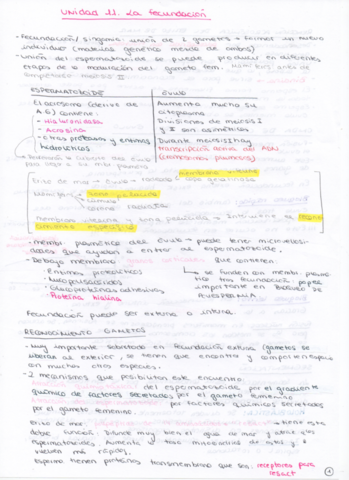 Unidad 11. La fecundación
- Fecundación/singamia: unión de 2 gametos → forman un nuevo
individuo (material genético mezcla de ambos)
- Unión del espermatozoide se puede producir en diferentes
etapas de la maduración del gameto fem.
meiosis II
ESPERMATOZOIDE
ÓVULO
El acrosoma (deriva de
A.G) contiene:
- Hialuronidasa
- Acrosina
- Otras proteasas y enzimas
hidrolíticos
Aumenta mucho su
citoplasma
Divisiones de meiosis I
y II son asimétricas
Durante meiosis I hay
transcripción activa del ADN
(cromosomas plumosos)
membrana vitelina
Erizo de mar → óvulo → rodeado capa gelatinosa
Mamíferos
zona pelúcida
corona radiata
Membrana vitelina y zona pelúcida → intervienen en
- Memb. plasmática del óvulo → puede tener microvellosidades
que ayudan a entrar al espermatozoide.
- Debajo membrana
que contienen:
· Enzimas proteolíticos
· Mucopolisacáridos
· Glucoproteínas adhesivas
· Proteína hialina
↳ se funden con memb. plasmá
tica tras fecundación papel
importante en BLOQUEO DE
POLIESPERMIA.
Fecundación puede ser externa o interna.
RECONOCIMIENTO GAMETOS
- Muy importante sobretodo en fecundación externa (gametos se
liberan al exterior, se tienen que encontrar y
con muchas otras especies.
- 2 mecanismos que posibilitan este encuentro:
del espermatozoide por el gradiente
químico de factores secretados por el gameto femenino
por factores químicos secretados
por el gameto femenino.
Erizo de mar:
tiene esta
doble función. Difunde muy bien el agua de mar y atrae los
espermatozoides. Aumenta tasa mitocondrias de estos y
vuelven más rápidos.
Espermo tienen proteínas transmembrana que son receptores para
resact
1